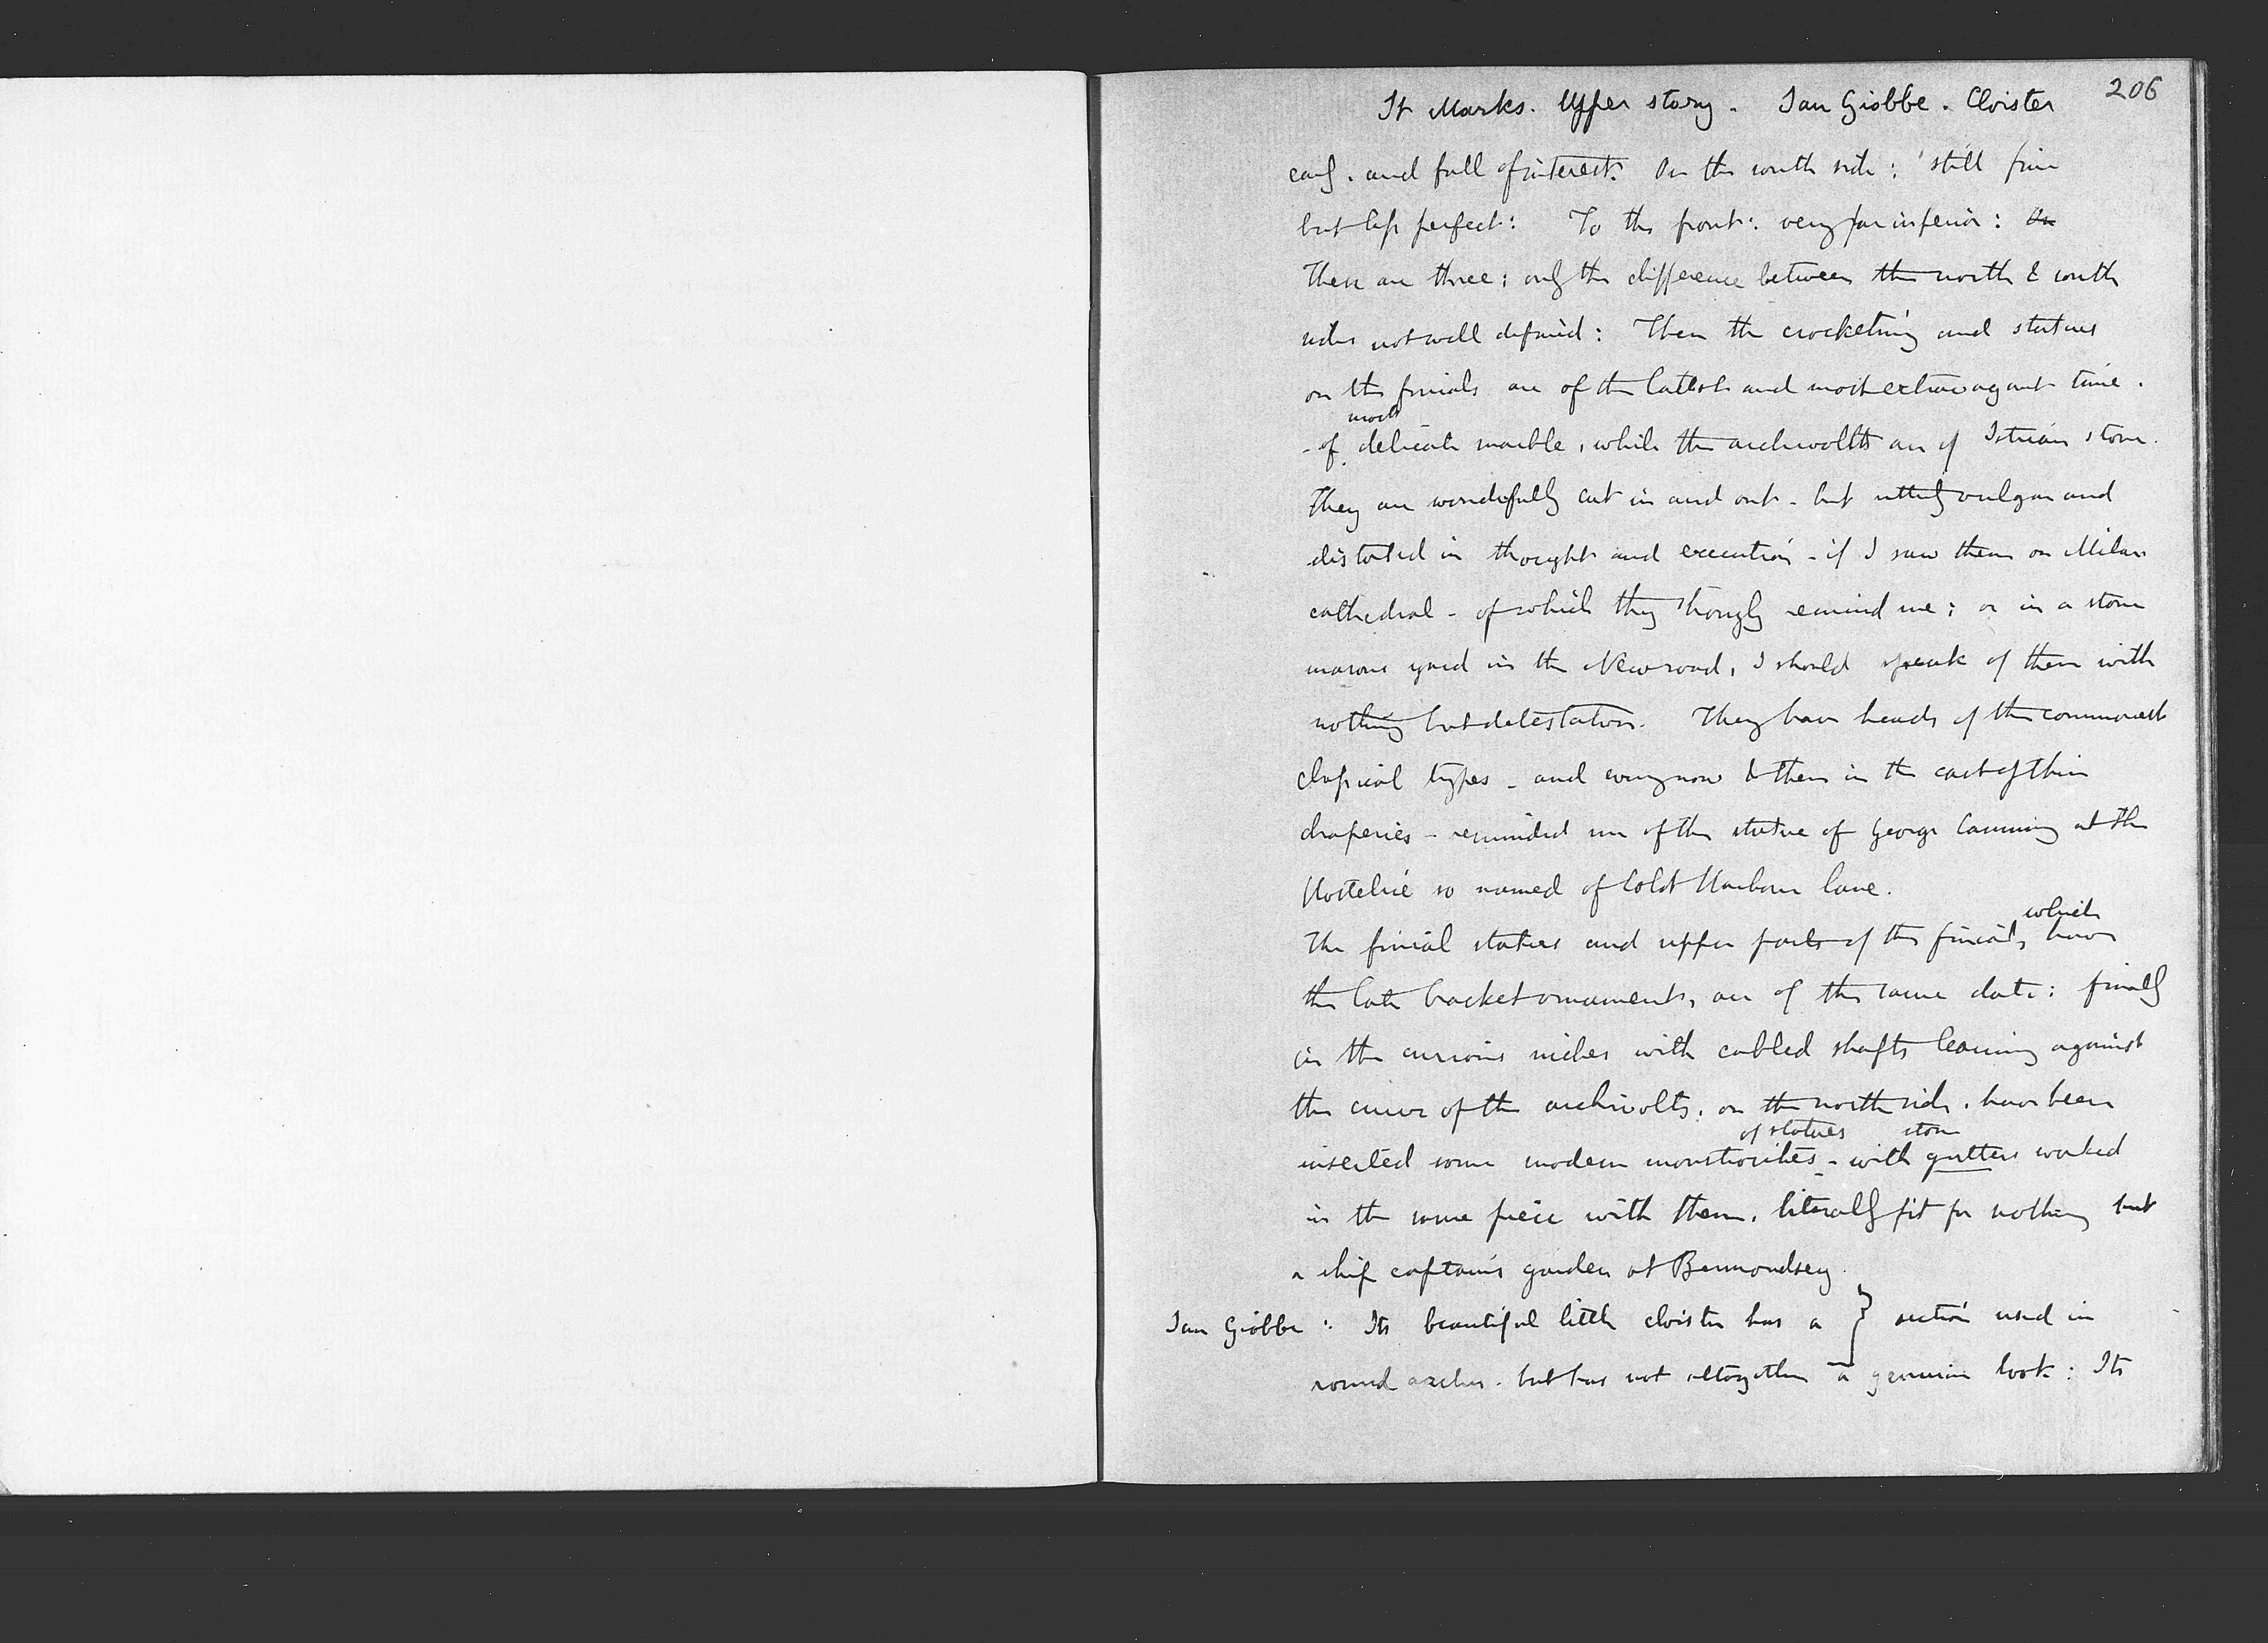 206
St Marks. Upper story. San Giobbe. Cloister
early. and full of interest. On the south side: still fine
but less perfect: To the front: very far inferior: On
These are three: only the difference between the north & south
sides not well defined: Then the crocketing and statues
on the finials are of the latest and most extravagant time.
most
- of delicate marble, while the archivolts are of Istrian stone.
They are wonderfully cut in and out - but utterly vulgar and
distorted in thought and execution - if I saw them on Milan
cathedral - of which they strongly remind me; or in a stone
masons yard in the New road, I should speak of them with
nothing but detestation. They have heads of the commonest
classical types - and every now & then in the cast of their
draperies - reminded me of the statue of George Canning at the
Hostelrie so named of Cold Harbour lane.
which
The finial statues and upper parts of the finials, have
the late bracket ornaments, are of the same date: finally
in the curious niches with cabled shafts leaning against
the curve of the archivolts, on the north side, have been
of statues stone
inserted some modern monstrosities - with gutters worked
in the same piece with them, literally fit for nothing but
a ship captain's garden at Bermondsey.
San Giobbe: Its beautiful little cloister has a } section used in
round arches. but has not altogether a genuine look: Its